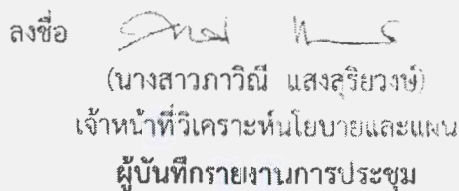 ลงชื่อ
(นางสาวภาวิณี แสงสุริยวงษ์)
เจ้าหน้าที่วิเคราะห์นโยบายและแผน
ผู้บันทึกรายงานการประชุม